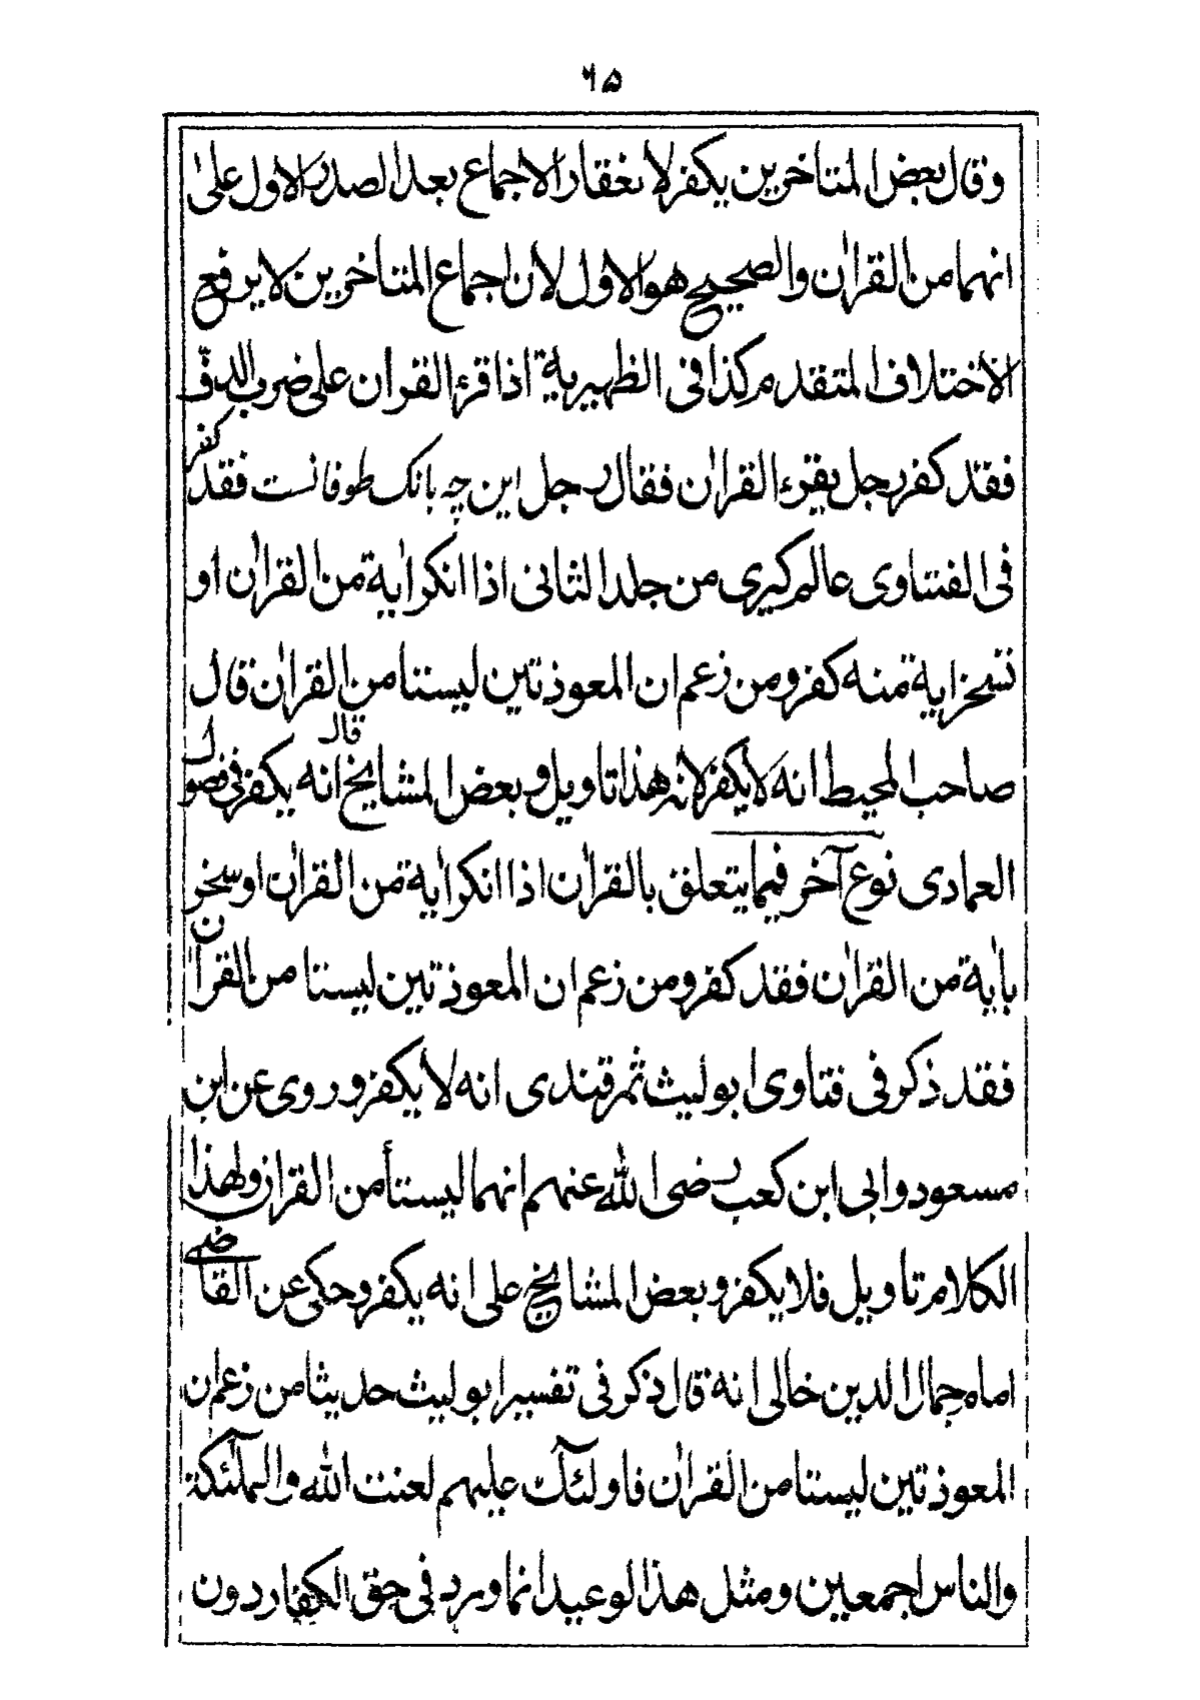 ٦٥
وقال بعض المتاخرين يكفر لانعقار الاجماع بعد الصدر الاول على
انهما من القراٰن والصحيح هو الاول لان اجماع المتاخرين لا يرفع
الاختلاف المتقدم كذا فى الظهيرية اذا قرء القران على ضرب الدفّ
فقد كفر رجل يقرء القراٰن فقال رجل اين چه بانك طوفانست فقد كفر
فى الفتاوى عالم كيرى من جلد الثانى اذا انكر اية من القراٰن او
تسخر اية منه كفر ومن زعم ان المعوذتين ليستا من القراٰن قال
صاحب المحيط انه لا يكفر لانه هذا تاويل وبعض المشايخ قال انه يكفر فى فصول
العمادى نوع آخر فيما يتعلق بالقراٰن اذا انكر اية من القراٰن او سخر
باٰية من القراٰن فقد كفر ومن زعم ان المعوذتين ليستا من القراٰن
فقد ذكر فى فتاوى ابو ليث ثمرقندى انه لا يكفر وروى عن ابن
مسعود وابى ابن كعب رضى الله عنهم انهما ليستا من القران ولهذا
الكلام تاويل فلا يكفر وبعض المشايخ على انه يكفر وحكى عن القاضى
امام جمال الدين خالى انه قال ذكر فى تفسير ابو ليث حديثا من زعم ان
المعوذتين ليستا من القراٰن فاولئك عليهم لعنت الله والملٰئكة
والناس اجمعين ومثل هذا لوعيد انما ورد فى حق الكفار دون